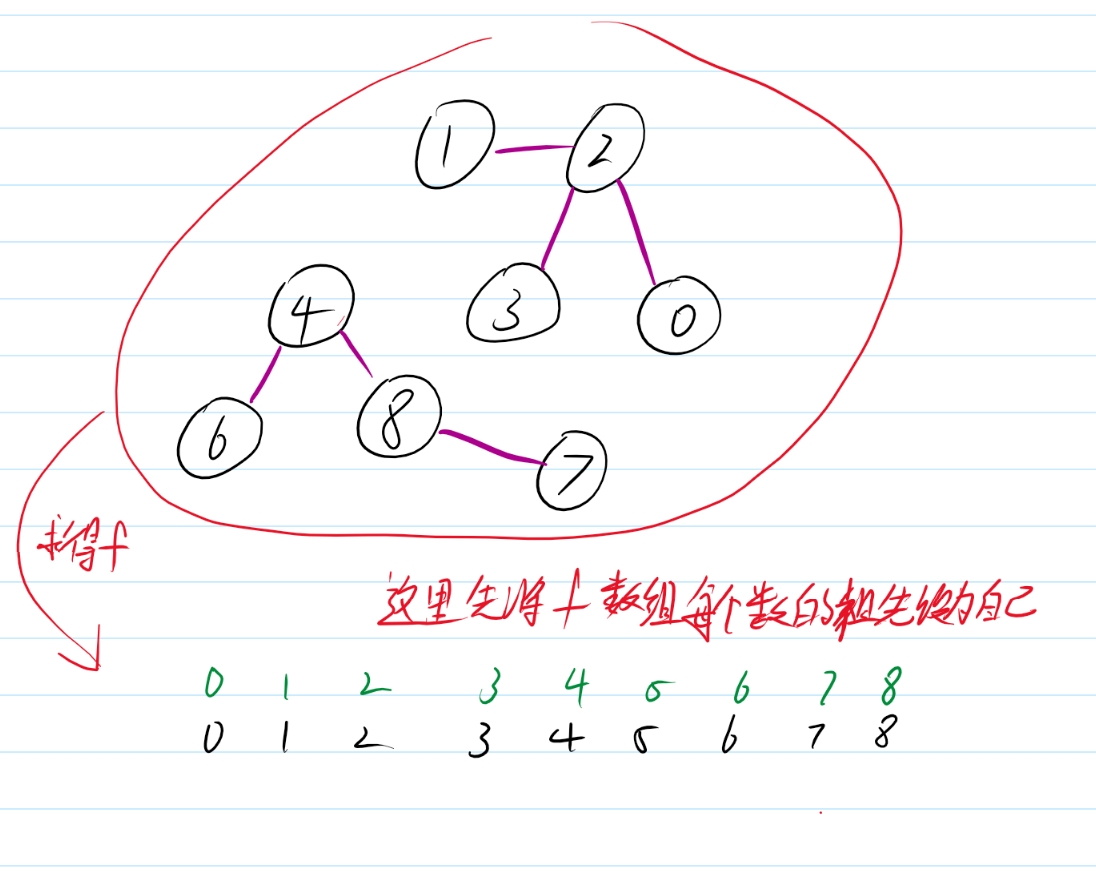 1 2
4 3 0
6 8 7
求得f
这里先将f数组每个数的祖先设为自己
0 1 2 3 4 5 6 7 8
0 1 2 3 4 5 6 7 8